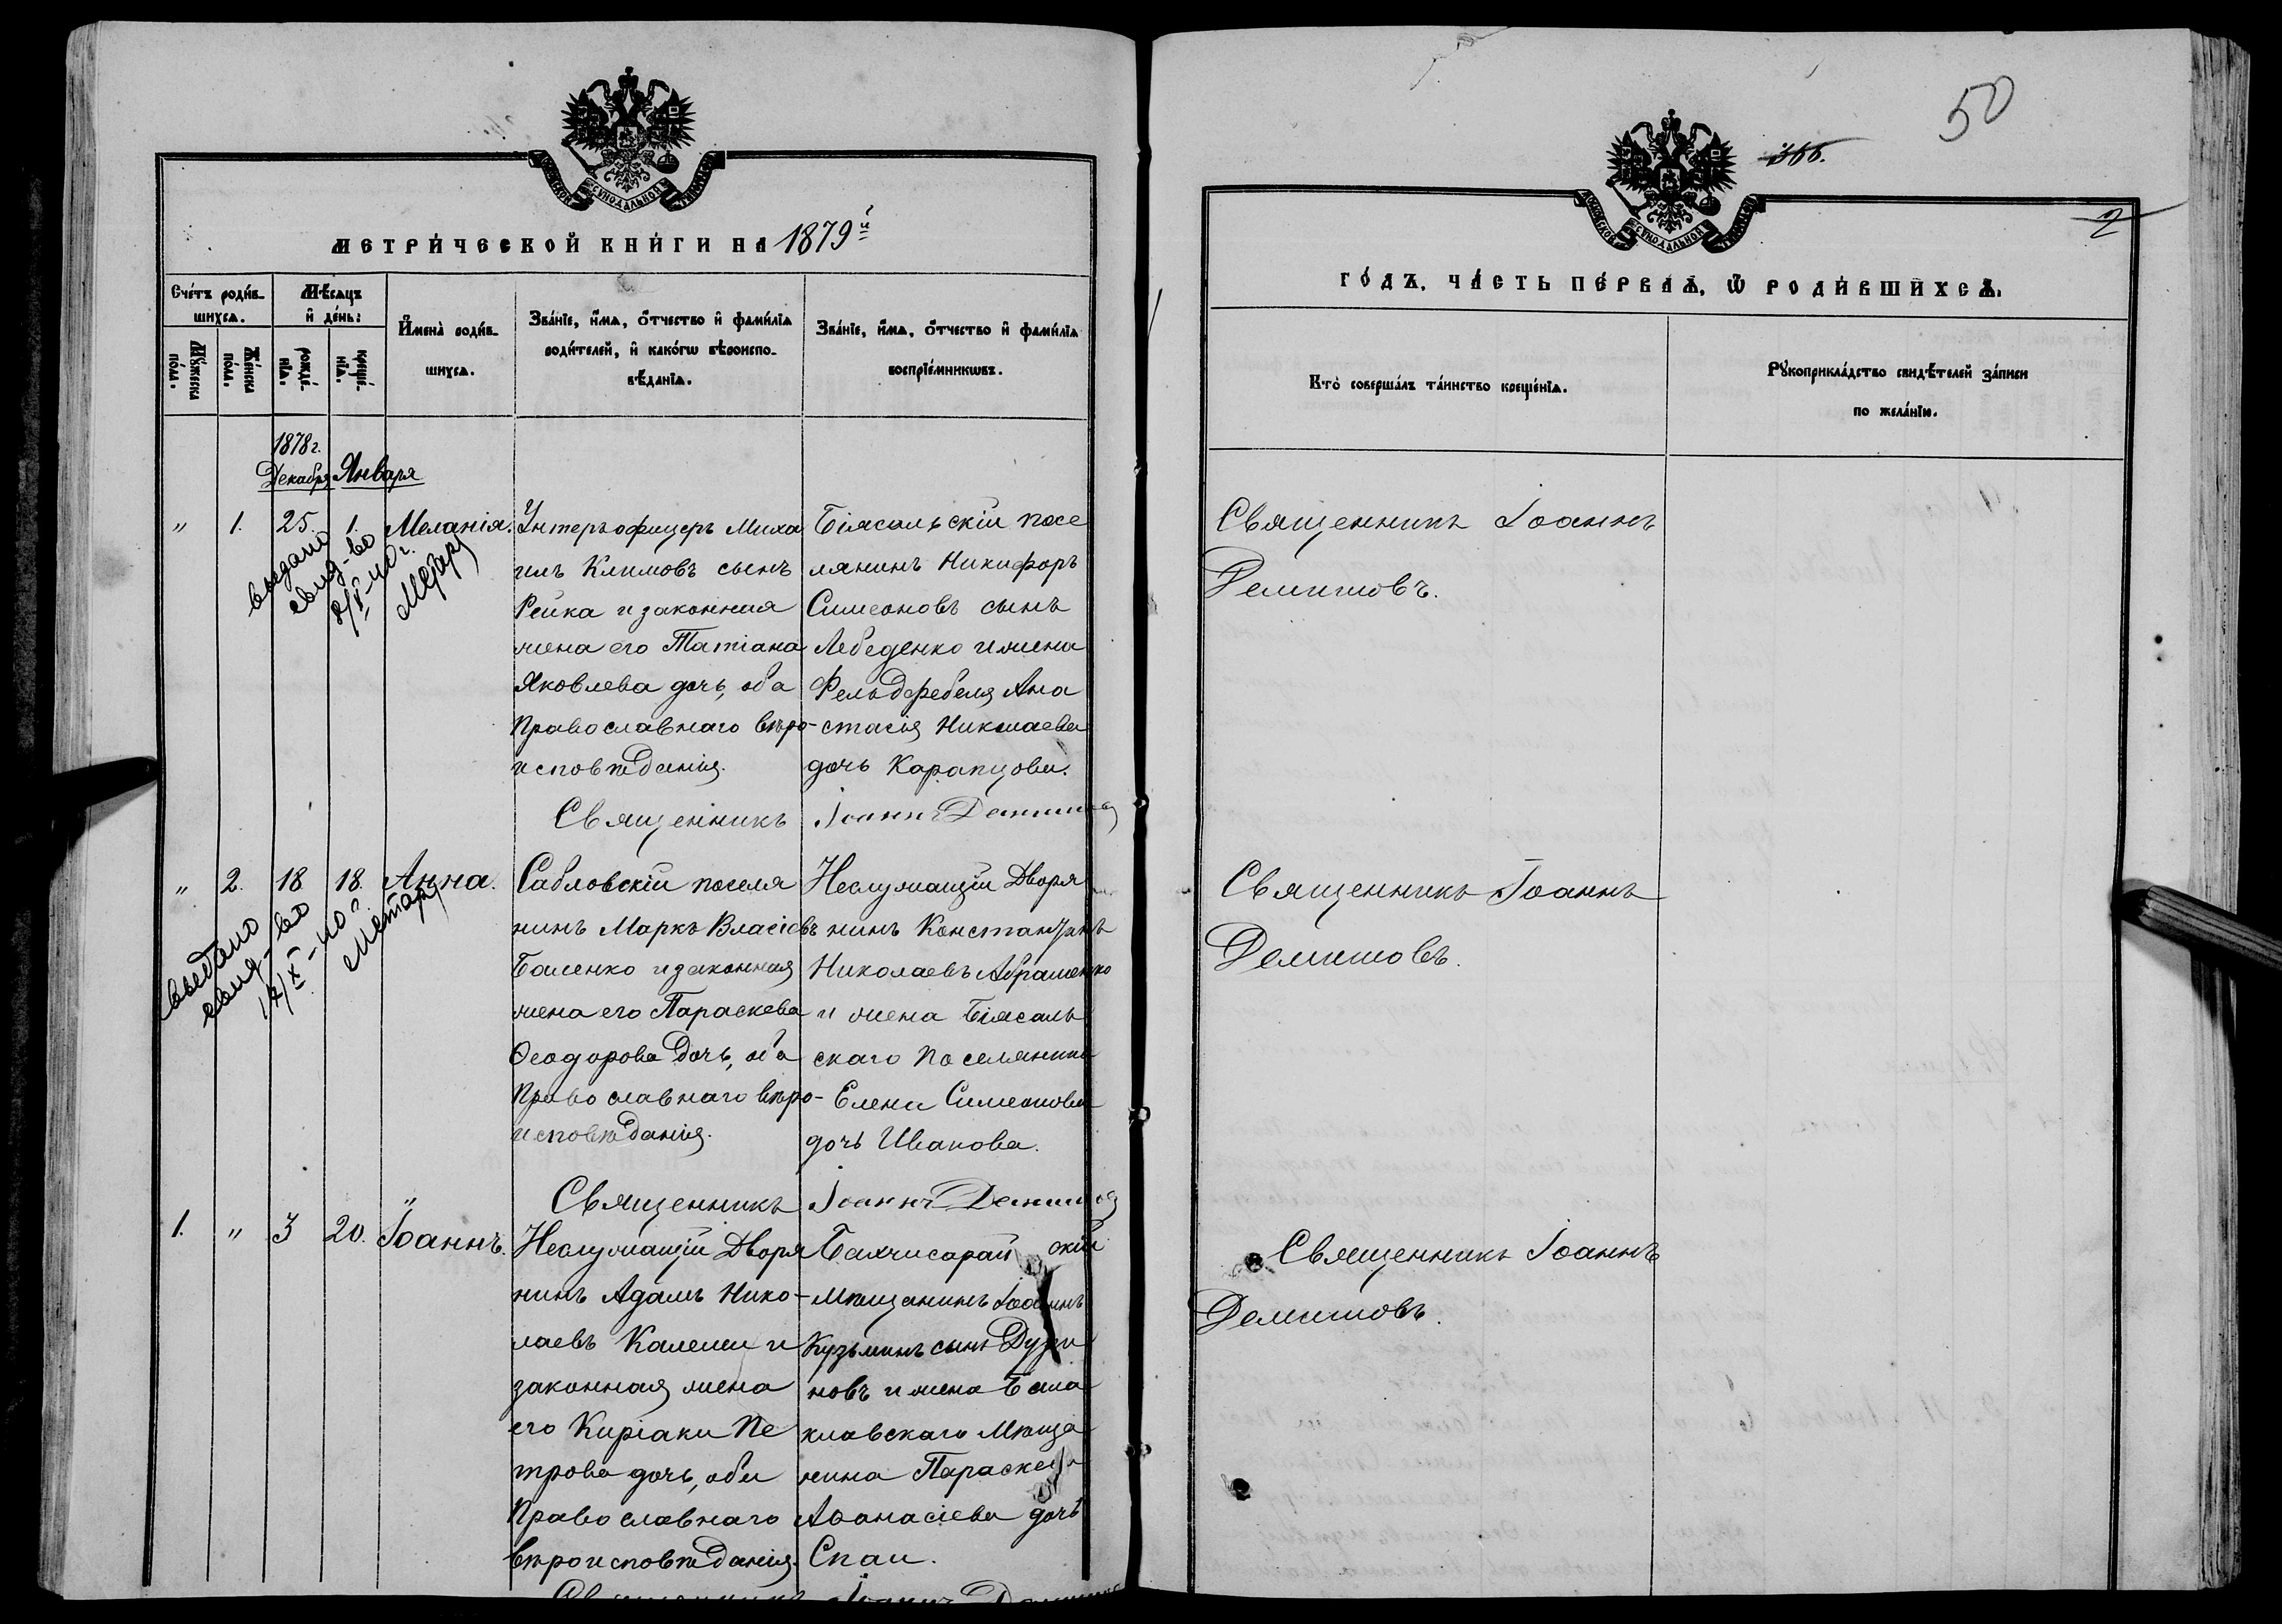 МОСКОВСКОЙ СУНОДАЛЬНОЙ ТИПОГРАФІИ
МЕТРИ́ЧЕСКОЙ КНИ́ГИ НА 1879й
Сче́тъ роди́в-
шихсѧ.
Мѣ́сѧцъ
и҆ де́нь:
И҆мена̀ роди́в-
шихсѧ.
Зва́нїе, и҆́мѧ, ѻ҆́тчество и҆ фами́лїѧ
роди́телей, и҆ како́гѡ вѣроиспо-
вѣ́данїѧ.
Зва́нїе, и҆́мѧ, ѻ҆́тчество и҆ фами́лїѧ
воспрїе́мникѡвъ.
Мꙋ́жеска
по́ла.
Же́нска
по́ла.
рожде́-
нїѧ.
креще́-
нїѧ.
1878 г.
Декабря Января
" 1. 25. 1. Меланія.
выдано
свид-во
Унтеръ офицеръ Миха
илъ Климовъ сынъ
Рейка и законная
жена его Татіана
Яковлева дочь, оба
Православнаго вѣро-
исповѣданія.
Біясальскій посе
лянинъ Никифоръ
Симеоновъ сынъ
Лебеденко и жена
Фельдфебеля Ана
стасія Николаева
дочь Карапцова.
Священникъ Іоаннъ Демишов
" 2. 18 18. Анна.
выдано
свид-во
Сабловскій поселя
нинъ Маркъ Власіевъ
Баленко и законная
жена его Параскева
Ѳеодорова дочь, оба
Православнаго вѣро-
исповѣданія.
Неслужащій Дворя
нинъ Константинъ
Николаевъ Абраменко
и жена Біясаль
скаго поселянина
Елена Симеонова
дочь Иванова.
Священникъ Іоаннъ Демишов
1. " 3 20. Іоаннъ.
Неслужащій Дворя
нинъ Адамъ Нико-
лаевъ Калеми и
законная жена
его Киріаки Пе
трова дочь, оба
Православнаго
вѣроисповѣданія.
Бахчисарай скій
мѣщанинъ Іоаннъ
Кузьминъ сынъ
новъ и жена Бала
клавскаго Мѣща
нина Параскева
Аѳанасіева дочь
Спаи.
50
366.
2
МОСКОВСКОЙ СУНОДАЛЬНОЙ ТИПОГРАФІИ
ГО́ДЪ. ЧА́СТЬ ПЕ́РВАѦ, Ѽ РОДИ́ВШИХСѦ.
Кто̀ соверша́лъ та́инство креще́нїѧ.
Рꙋкоприкла́дство свидѣ́телей за́писи
по жела́нїю.
Священникъ Іоаннъ
Демишовъ.
Священникъ Іоаннъ
Демишовъ.
Священникъ Іоаннъ
Демишовъ.